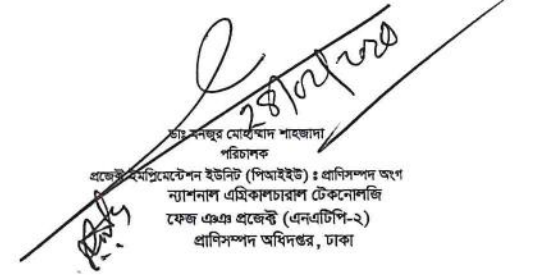 ডাঃ মনজুর মোহাম্মাদ শাহজাদা
পরিচালক
প্রজেক্ট ইমপ্লিমেন্টেশন ইউনিট (পিআইইউ) ঃ প্রাণিসম্পদ অংগ
ন্যাশনাল এগ্রিকালচারাল টেকনোলজি
ফেজ ⅠⅠ প্রজেক্ট (এনএটিপি-২)
প্রাণিসম্পদ অধিদপ্তর, ঢাকা